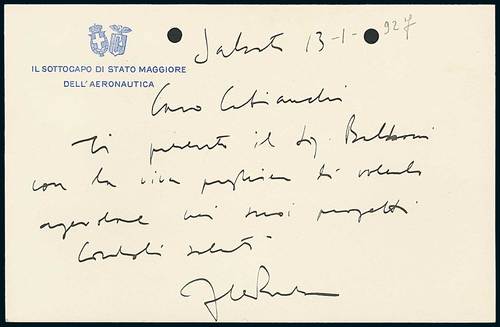 Sabato 13-1-927
IL SOTTOCAPO DI STATO MAGGIORE
DELL'AERONAUTICA
Caro
Ti presento il Sig. Balboni
con la viva preghiera di volerlo
agevolare nei suoi progetti
Cordiali saluti